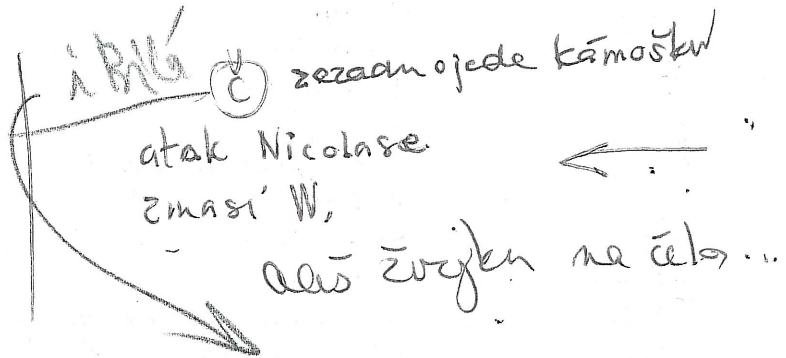 i Bílá
Č zezadu ojede kámošku
atak Nicolase.
zmasí W,
Aleš žvejku na čelo...